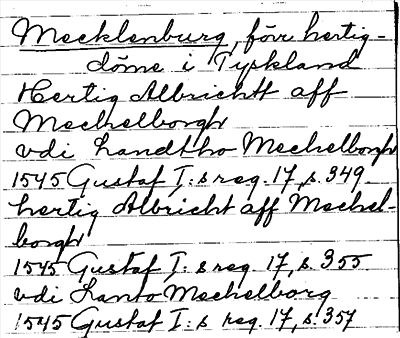 Mecklenburg, förr hertig-
döme i Tyskland
Hertig Albrichtt aff
Mechelborgh
vdi Landtho Mechelborgh
1545 Gustaf I:s reg. 17, s. 349
hertig Albricht aff Mechel-
borgh
1545 Gustaf I:s reg. 17, s. 355
vdi Lanto Mechelborg
1545 Gustaf I:s reg. 17, s. 357